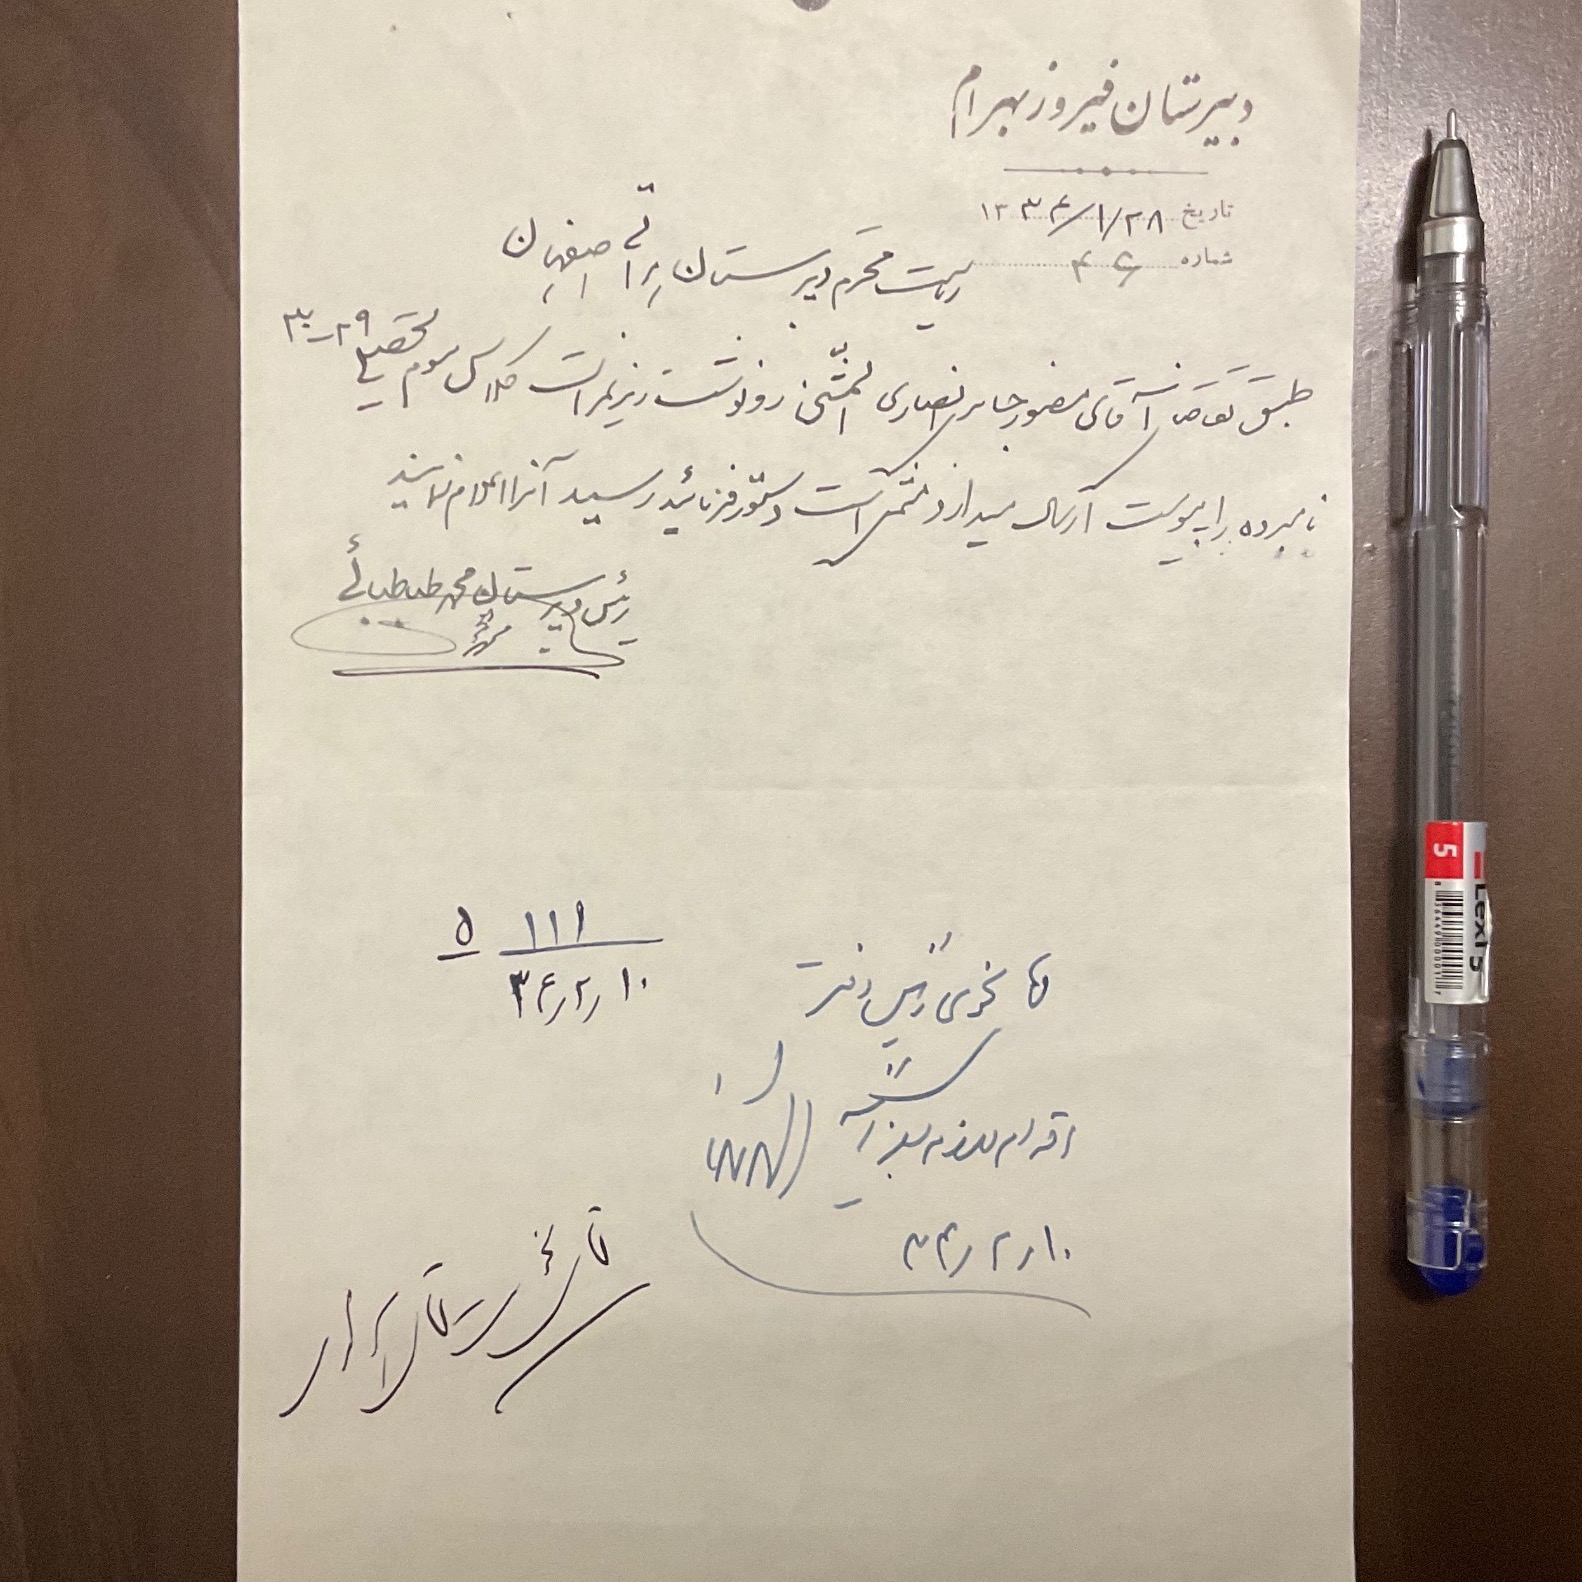 دبیرستان فیروز بهرام
تاریخ ۱۳۳۴/۱/۲۸
شماره ۴۶
ریاست محترم دبیرستان اصفهان
طبق تقاضای آقای منصور جابر انصاری المثنی رونوشت ریز نمرات کلاس سوم تحصیلی ۲۹-۳۰
نامبرده را به پیوست ارسال میدارد متمنی است دستور فرمائید رسید آنرا اعلام نمایند
رئیس دبیرستان محمد طباطبائی
۱۱۱ ۵
۳۴/۲/۱۰
رئیس دفتر
اقدام لازم
۳۴/۲/۱۰
Lexi 5
5